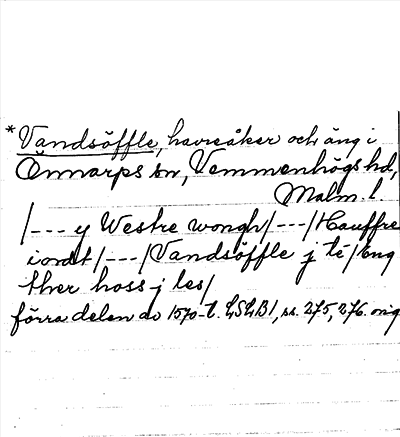 *Vandsöffle, havreåker och äng i
Önnarps sn, Vemmenhögs hd,
Malm. l.
/--- y Westre wongh/---/Hauffre
iordt/---/Vandsöffle j té/Eng
ther hoss j les/
förra delen av 1570-t. LSLB1, ss. 275, 276. orig